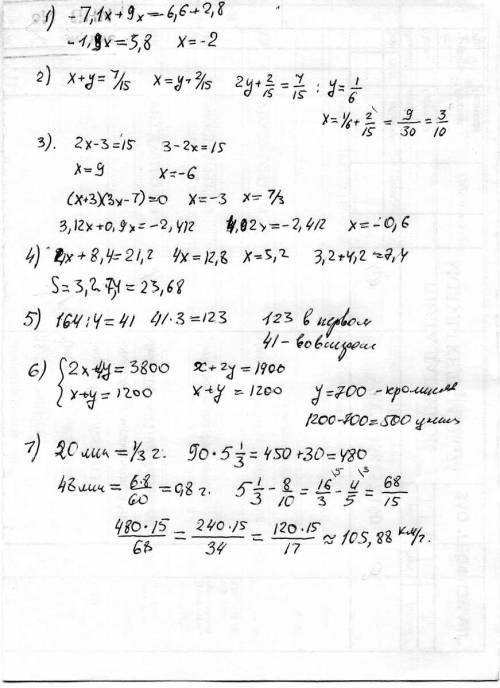 1) -7,1x+9x=-6,6+2,8
-1,9x=3,8 x=-2
2) x+y=7/15 x=y+2/15 2y+2/15=7/15 : y=1/6
x=1/6+2/15=9/30=3/10
3). 2x-3=15 3-2x=15
x=9 x=-6
(x+3)(3x-7)=0 x=-3 x=7/3
3,12x+0,9x=-2,412 4,02x=-2,412 x=-0,6
4) 4x+8,4=21,2 4x=12,8 x=5,2 3,2+4,2=7,4
S=3,2·7,4=23,68
5) 164:4=41 41·3=123 123 в первом
41-во втором
6) {2x+4y=3800 x+2y=1900
{x+y=1200 x+y=1200 y=700-кроликов
1200-700=500
7) 20мин=1/3 г. 90·5 1/3=450+30=480
48мин=6·8/60=0,8 г. 5 1/3-8/10=16/3-4/5=68/15
480·15/68=240·15/34=120·15/17≈105,88 км/г.